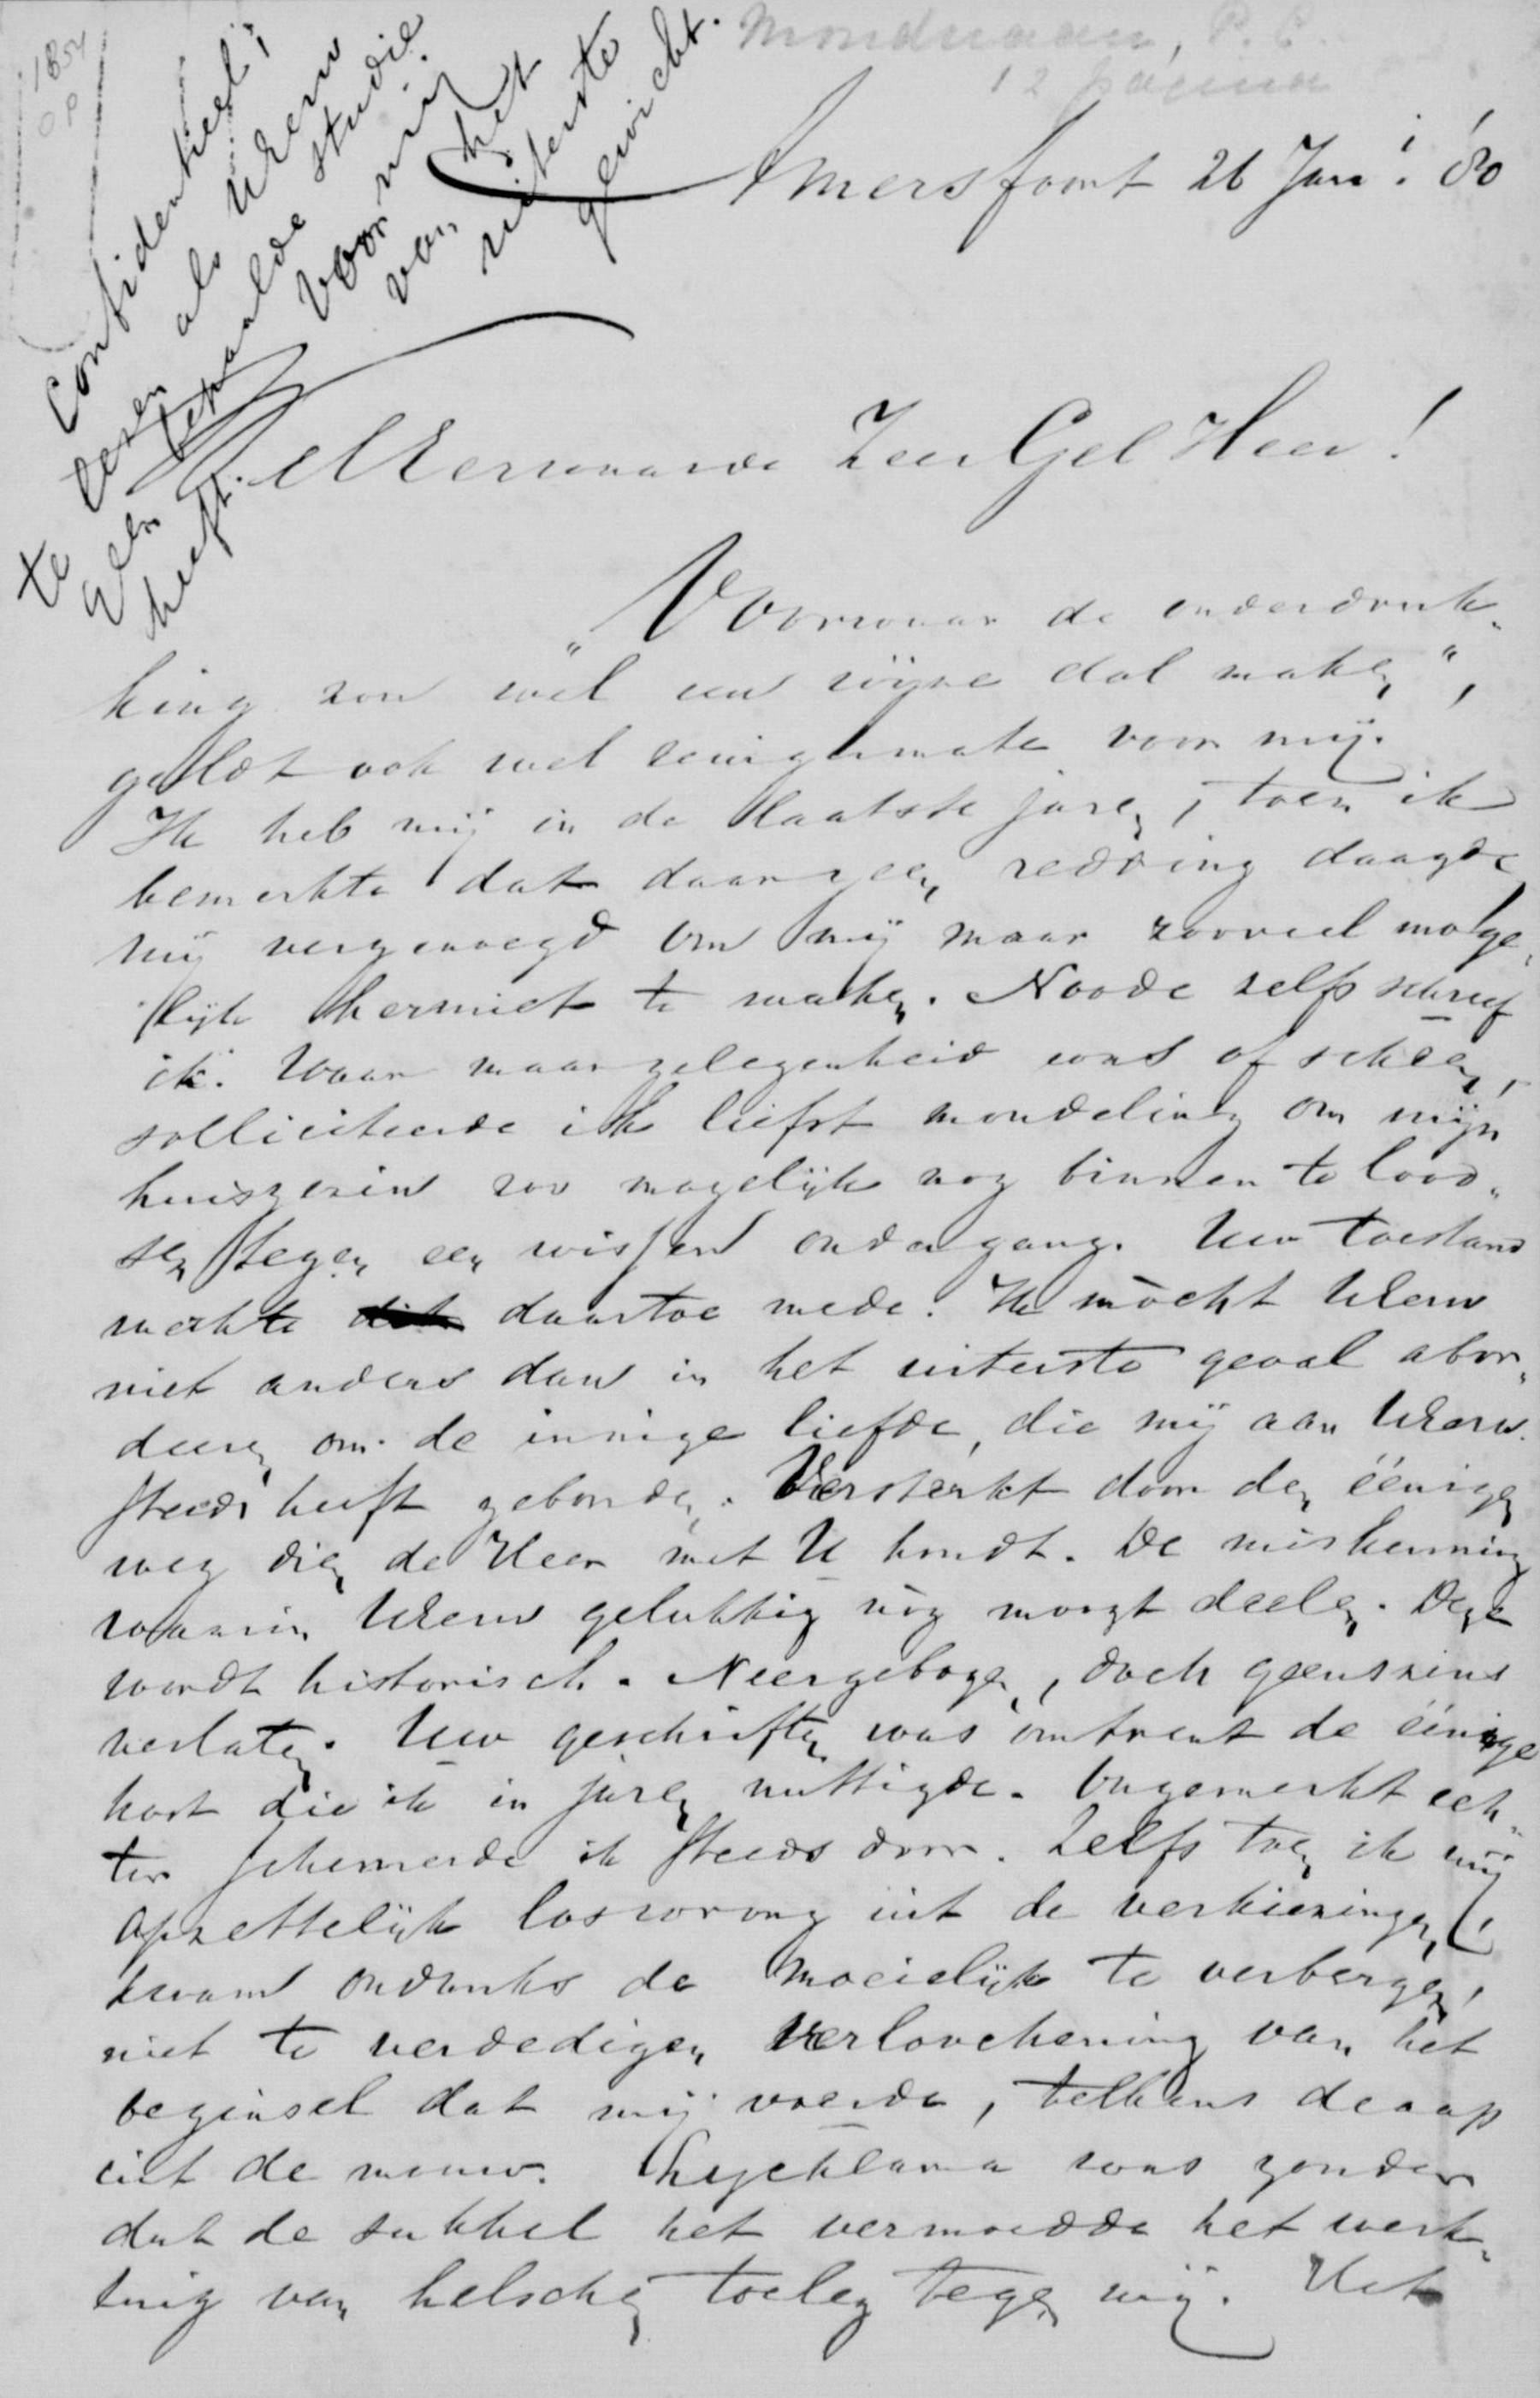 1854
OP
Mondriaan, P. C.
12 pagina
Confidentieel;
te lezen als UEerw
een bepaalde studie
heeft. voor mij
van het
uiterste
gewicht.
Amersfoort 26 Jan<sup>i</sup>. '80
WelEerwaarde ZeerGel Heer!
„Voorwaar de onderdruk„
king zou wel een wijze dol maken",
geldt ook wel eenigermate voor mij.
Ik heb mij in de laatste jaren, toen ik
bemerkte dat daar geen redding daagde
mij vergenoegd om mij maar zooveel moge„
lijk hermiet te maken. Noode zelfs schreef
ik. Waar maar gelegenheid was of scheen,
solliciteerde ik liefst mondeling om mijn
huisgezin zoo mogelijk nog binnen te lood„
sen tegen een wissen ondergang. Uw toestand
werkte daartoe mede. Ik mocht UEerw
niet anders dan in het uiterste geval abor„
deeren om de innige liefde, die mij aan UEerw.
steeds heeft gebonden. Versterkt door den éénigen
weg dien de Heer met U houdt. De miskenning
waarin UEerw gelukkig nog moogt deelen. Deze
wordt historisch. Neergebogen, doch geenszins
verlaten. Uw geschriften was omtrent de éénige
kost die ik in jaren nuttigde. Ongemerkt ech„
ter schemerde ik steeds door. Zelfs toen ik mij
opzettelijk loswrong uit de verkiezingen,
kwam ondanks de moeielijk te verbergen,
niet te verdedigen verloochening van het
beginsel dat mij voerde, telkens de aap
uit de mouw. Lycklama was zonder
dat de sukkel het vermoedde het werk„
tuig van helschen toeleg tegen mij. Het